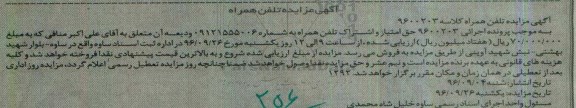 آگهی مزایده تلفن همراه
آگهی مزایده تلفن همراه کلاسه ۹۶۰۰۲۰۳
به موجب پرونده اجرائی ۹۶۰۰۲۰۳ حق امتیاز و اشتراک تلفن همراه به شماره ۰۹۱۲۱۵۵۵۰۰۶ ودیعه آن متعلق به آقای علی اکبر منافی که به مبلغ
۷۰/۰۰۰/۰۰۰ ریال (هفتاد میلیون ریال) ارزیابی شده، از ساعت ۹ الی ۱۲ روز یکشنبه مورخ ۹۶/۰۹/۲۶ در اداره ثبت اسناد ساوه واقع در ساوه - بلوار شهید
بهشتی - نبش شهید آوینی از طریق مزایده به فروش می رسد. مزایده از مبلغ ارزیابی شده شروع و به بالاترین قیمت پیشنهادی نقدا فروخته خواهد شد و کلیه
هزینه های قانونی به عهده برنده مزایده است و نیم عشر و حق مزایده نقدا وصول خواهد شد. ضمنا چنانچه روز مزایده تعطیل رسمی اعلام گردد، مزایده روز اداری
بعد از تعطیلی در همان زمان و مکان مقرر برگزار خواهد شد. ۱۲۹۲
تاریخ انتشار: شنبه ۹۶/۰۹/۰۴
تاریخ مزایده: یکشنبه ۹۶/۰۹/۲۶
مسئول واحد اجرای اسناد رسمی ساوه خلیل شاه محمدی